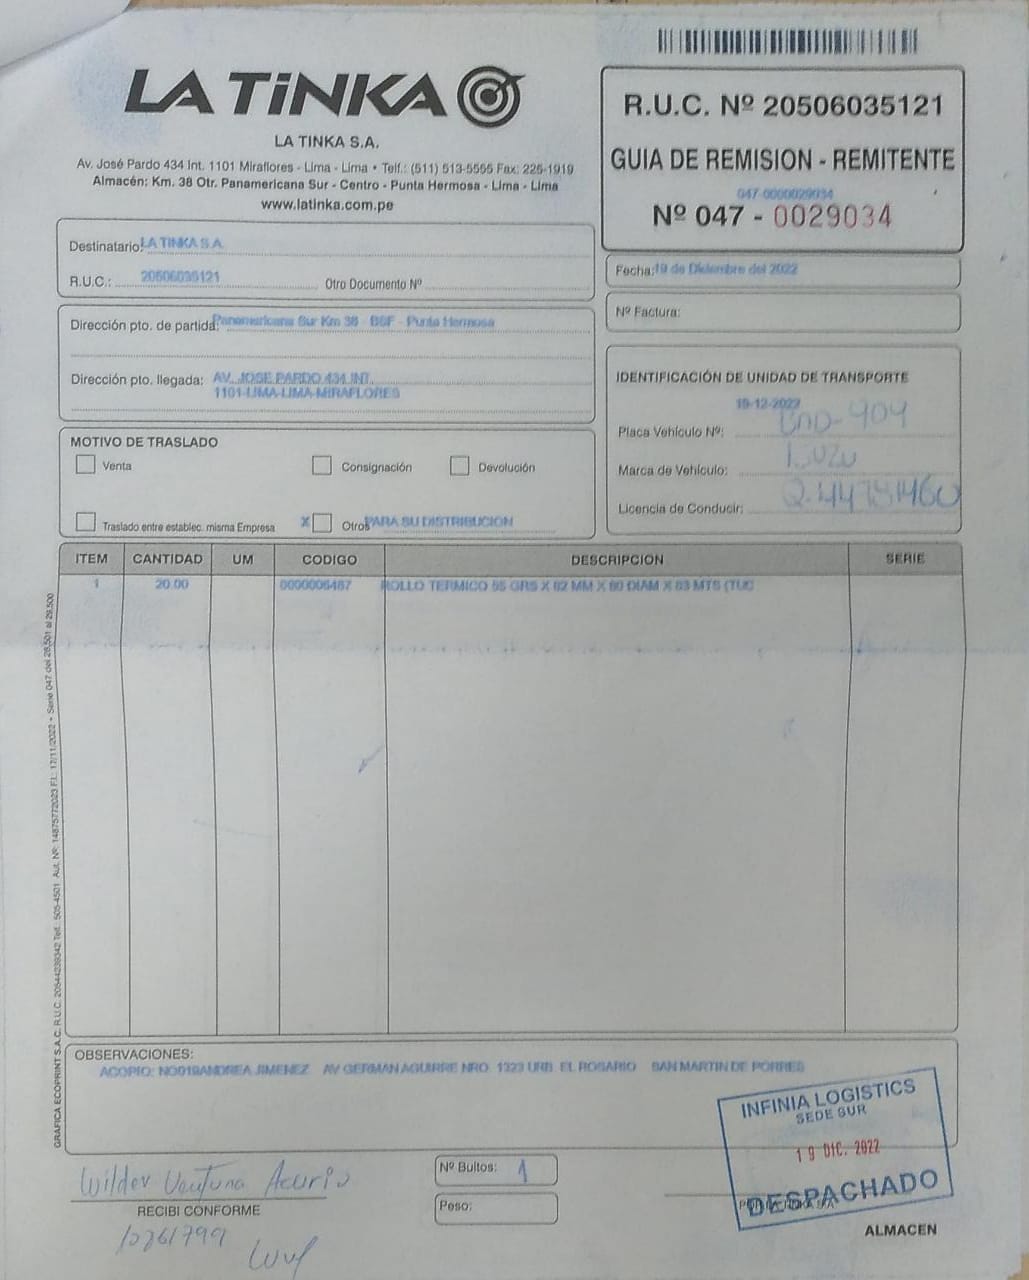 LA TiNKA
LA TINKA S.A.
Av. José Pardo 434 Int. 1101 Miraflores - Lima - Lima • Telf.: (511) 513-5555 Fax: 225-1919
Almacén: Km. 38 Otr. Panamericana Sur - Centro - Punta Hermosa - Lima - Lima
www.latinka.com.pe
R.U.C. Nº 20506035121
GUIA DE REMISION - REMITENTE
047-0000029034
Nº 047 - 0029034
Destinatario: LA TINKA S.A.
R.U.C.: 20506035121 Otro Documento Nº
Fecha: 19 de Diciembre del 2022
Nº Factura:
Dirección pto. de partida: Panamericana Sur Km 38 - BSF - Punta Hermosa
Dirección pto. llegada: AV. JOSE PARDO 434 INT.
1101-LIMA-LIMA-MIRAFLORES
IDENTIFICACIÓN DE UNIDAD DE TRANSPORTE
19-12-2022
Placa Vehículo Nº: -904
Marca de Vehículo: Isuzu
Licencia de Conducir: Q-44781460
MOTIVO DE TRASLADO
Venta Consignación Devolución
Traslado entre establec. misma Empresa X Otros PARA SU DISTRIBUCION
ITEM CANTIDAD UM CODIGO DESCRIPCION SERIE
1 20.00 0000006487 ROLLO TERMICO 55 GRS X 82 MM X 80 DIAM X 83 MTS (TUC
GRAFICA ECOPRINT S.A.C. R.U.C. 20544239342 Telf.: 505-4501 Aut. Nº: 14875772023 F.I.: 17/11/2022 • Serie 047 del 28,501 al 29,500
OBSERVACIONES:
ACOPIO: NO019ANDREA JIMENEZ AV GERMAN AGUIRRE NRO. 1323 URB. EL ROSARIO SAN MARTIN DE PORRES
INFINIA LOGISTICS
SEDE SUR
19 DIC. 2022
DESPACHADO
Wilder Ventura Acurio
RECIBI CONFORME
10261799
Nº Bultos: 1
Peso:
ALMACEN